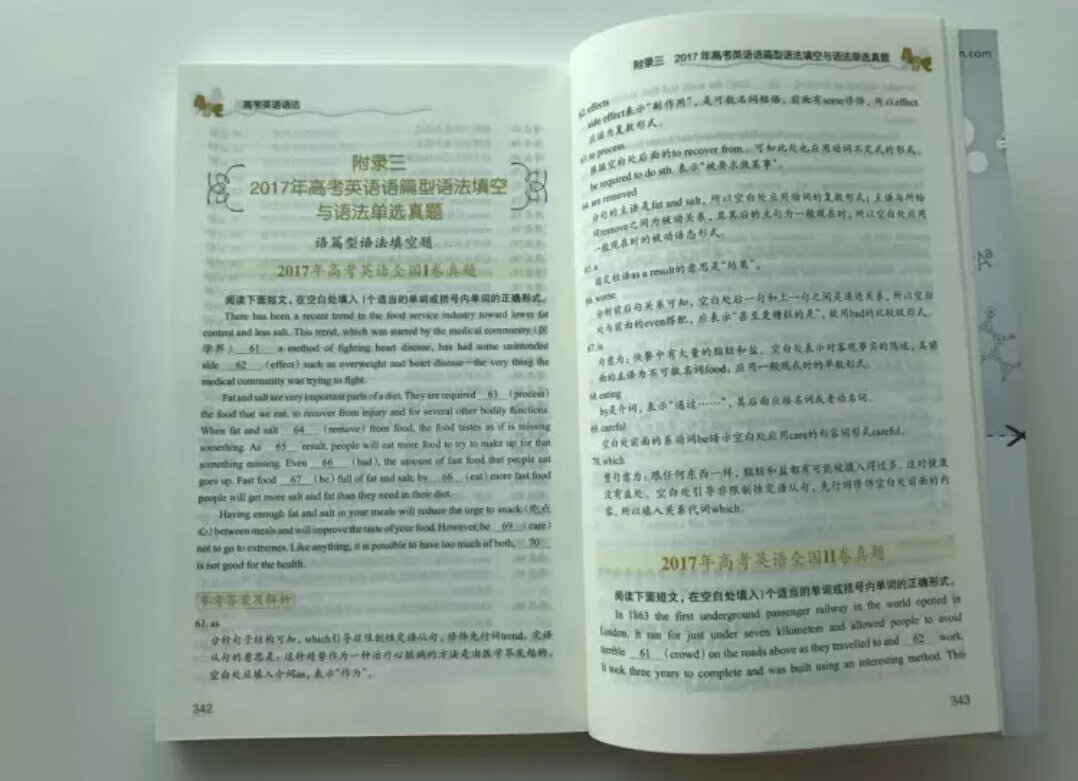 高考英语语法
附录三
2017年高考英语语篇型语法填空
与语法单选真题
语篇型语法填空题
2017年高考英语全国I卷真题
阅读下面短文，在空白处填入1个适当的单词或括号内单词的正确形式。
There has been a recent trend in the food service industry toward lower fat
content and less salt. This trend, which was started by the medical community (医
学界) 61 a method of fighting heart disease, has had some unintended
side 62 (effect) such as overweight and heart disease—the very thing the
medical community was trying to fight.
Fat and salt are very important parts of a diet. They are required 63 (process)
the food that we eat, to recover from injury and for several other bodily functions.
When fat and salt 64 (remove) from food, the food tastes as if is missing
something. As 65 result, people will eat more food to try to make up for that
something missing. Even 66 (bad), the amount of fast food that people eat
goes up. Fast food 67 (be) full of fat and salt; by 68 (eat) more fast food
people will get more salt and fat than they need in their diet.
Having enough fat and salt in your meals will reduce the urge to snack (吃点
心) between meals and will improve the taste of your food. However, be 69 (care)
not to go to extremes. Like anything, it is possible to have too much of both, 70
is not good for the health.
参考答案及解析
61. as
分析句子结构可知，which引导非限制性定语从句，修饰先行词trend，定语
从句的意思是：这种趋势作为一种治疗心脏病的方法是由医学界发起的。
空白处应填入介词as，表示“作为”。
342
附录三 2017年高考英语语篇型语法填空与语法单选真题
62. effects
side effect表示“副作用”，是可数名词短语，前面有some修饰，所以effect
应该为复数形式。
63. to process
根据空白处后面的to recover from... 可知此处也应用动词不定式的形式。
be required to do sth. 表示“被要求做某事”。
64. are removed
分句的主语是fat and salt，所以空白处应用动词的复数形式；主语与所给
词remove之间为被动关系，且其后的主句为一般现在时，所以空白处应用
一般现在时的被动语态形式。
65. a
固定短语as a result的意思是“结果”。
66. worse
分析前后句关系可知，空白处后一句和上一句之间是递进关系，所以空白
处与前面的even搭配，应表示“甚至更糟糕的是”，故用bad的比较级形式。
67. is
句意为：快餐中有大量的脂肪和盐。空白处表示对客观事实的陈述，其前
面的主语为不可数名词food，应用一般现在时的单数形式。
68. eating
by是介词，表示“通过……”，其后面应接名词或者动名词。
69. careful
空白处前面的系动词be暗示空白处应用care的形容词形式careful。
70. which
整句意为：跟任何东西一样，脂肪和盐都有可能被摄入得过多，这对健康
没有益处。空白处引导非限制性定语从句，先行词修饰空白处前面的内
容，所以填入关系代词which。
2017年高考英语全国II卷真题
阅读下面短文，在空白处填入1个适当的单词或括号内单词的正确形式。
In 1863 the first underground passenger railway in the world opened in
London. It ran for just under seven kilometers and allowed people to avoid
terrible 61 (crowd) on the roads above as they travelled to and 62 work.
It took three years to complete and was built using an interesting method. This
343